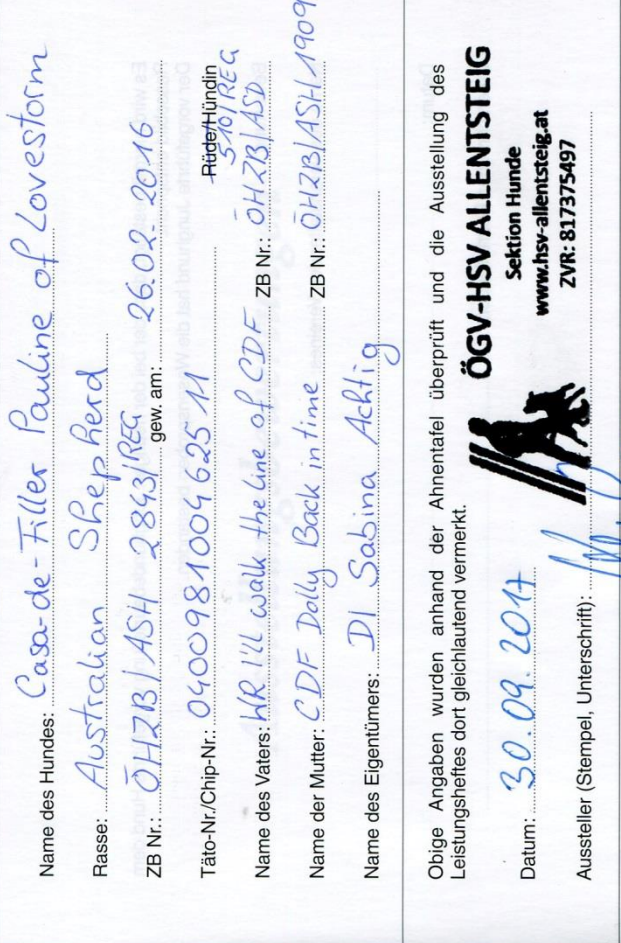 Name des Hundes: Casa-de-Filler Pauline of Lovestorm
Rasse: Australian Shepherd
ZB Nr.: ÖHZB/ASH 2843/REG gew. am: 26.02.2016
Täto-Nr./Chip-Nr.: 040098100462511 Rüde/Hündin
510/REG
Name des Vaters: WR I'll walk the line of CDF ZB Nr.: ÖHZB/ASD
Name der Mutter: CDF Dolly Back in time ZB Nr.: ÖHZB/ASH/1909
Name des Eigentümers: DI Sabina Achtig
Obige Angaben wurden anhand der Ahnentafel überprüft und die Ausstellung des
Leistungsheftes dort gleichlautend vermerkt.
Datum: 30.09.2017
ÖGV-HSV ALLENTSTEIG
Sektion Hunde
www.hsv-allentsteig.at
ZVR: 817375497
Aussteller (Stempel, Unterschrift):